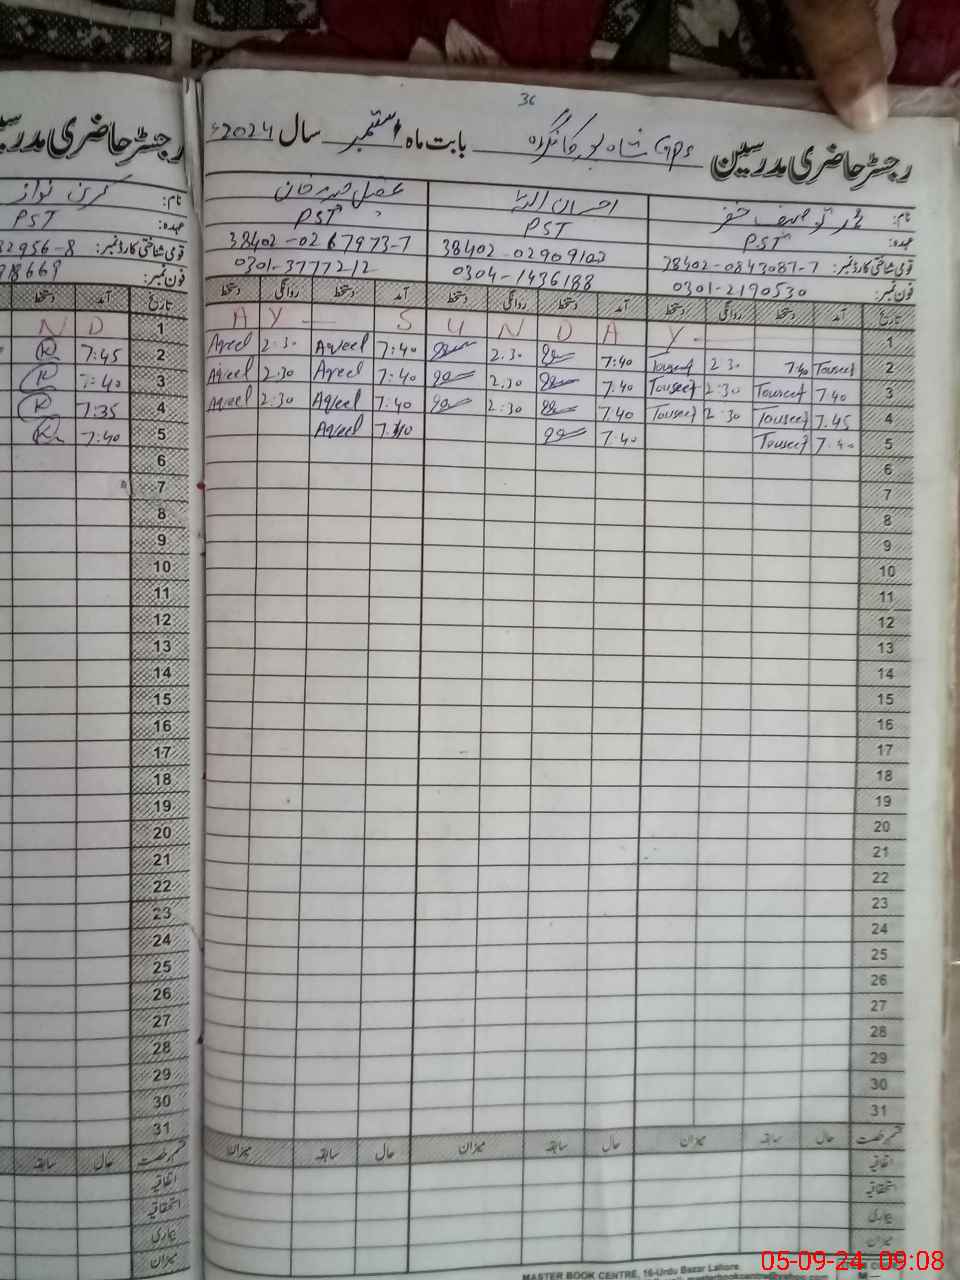 36
رجسٹر حاضری مدرسین GPS شاہ پور کانگڑہ بابت ماہ ستمبر سال 2024ء
رجسٹر حاضری مدرسین
نام: محمد توصیف احسان عقیل حیدر خان
عہدہ: PST PST PST
قومی شناختی کارڈ نمبر: 38402-0843087-7 38402-02909102 38402-0267973-7
فون نمبر: 0301-2190530 0304-1436188 0301-3777212
نام: کرن نواز
عہدہ: PST
قومی شناختی کارڈ نمبر: 2956-8
فون نمبر: 18669
تاریخ آمد دستخط روانگی دستخط آمد دستخط روانگی دستخط آمد دستخط روانگی دستخط
تاریخ آمد دستخط
1 A Y S U N D A Y
1 N D
2 Aqeel 2:30 Aqeel 7:40 2:30 7:40 Touseef 2:30 7:40 Touseef
2 7:45
3 Aqeel 2:30 Aqeel 7:40 2:30 7:40 Touseef 2:30 Touseef 7:40
3 7:40
4 Aqeel 2:30 Aqeel 7:40 2:30 7:40 Touseef 2:30 Touseef 7.45
4 7:35
5 Aqeel 7:40 7:40 Touseef 7.40
5 7:40
6 6
7 7
8 8
9 9
10 10
11 11
12 12
13 13
14 14
15 15
16 16
17 17
18 18
19 19
20 20
21 21
22 22
23 23
24 24
25 25
26 26
27 27
28 28
29 29
30 30
31 31
قسم رخصت حال سابقہ میزان حال سابقہ میزان حال سابقہ میزان
قسم رخصت حال سابقہ
اتفاقیہ اتفاقیہ
استحقاقیہ استحقاقیہ
بیماری بیماری
میزان میزان
MASTER BOOK CENTRE, 16-Urdu Bazar Lahore
05-09-24 09:08